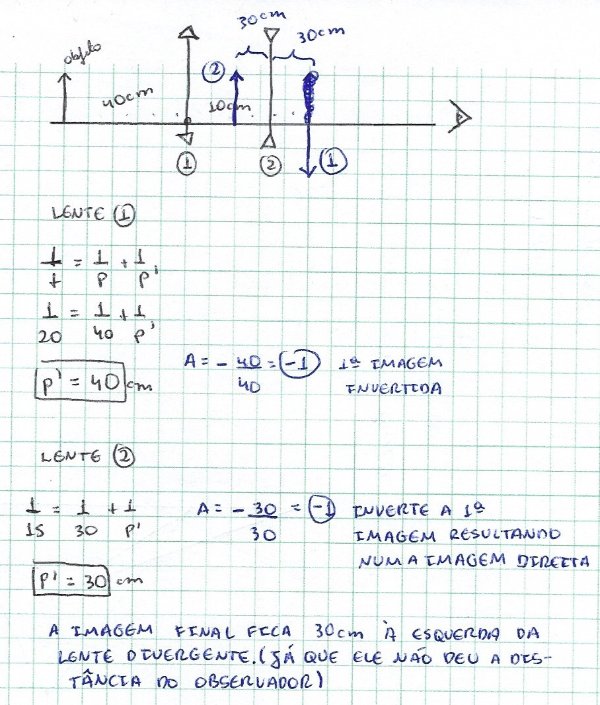 30cm
30cm
objeto
40cm
②
10cm
① ② ①
LENTE ①
1/f = 1/p + 1/p'
1/20 = 1/40 + 1/p'
p' = 40 cm
A = - 40/40 = -1 1ª IMAGEM
INVERTIDA
LENTE ②
1/15 = 1/30 + 1/p'
A = - 30/30 = -1 INVERTE A 1ª
IMAGEM RESULTANDO
NUMA IMAGEM DIREITA
p' = 30 cm
A IMAGEM FINAL FICA 30cm À ESQUERDA DA
LENTE DIVERGENTE. (JÁ QUE ELE NÃO DEU A DIS-
TÂNCIA DO OBSERVADOR)